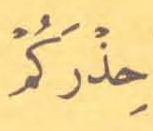 حِذْرَكُمْ